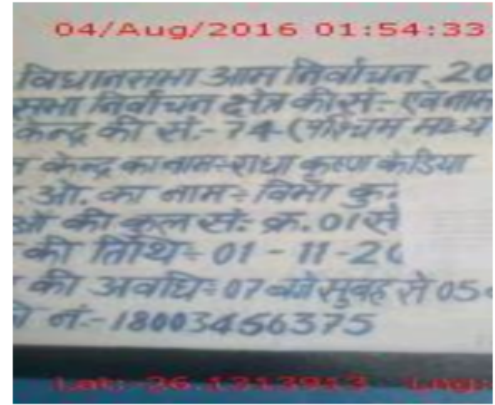 04/Aug/2016 01:54:33
विधानसभा आम निर्वाचन. 20
सभा निर्वाचन क्षेत्र की सं:- एवं नाम
केन्द्र की सं.- 74 (पश्चिम मध्य
केन्द्र का नाम:- राधा कृष्ण केडिया
ओ. का नाम:- विभा कु.
ओ की कुल सं: क्र. 01 से
की तिथि:- 01-11-20
की अवधि:- 07 बजे सुबह से 05
नं.- 18003456375
Lat:-26.1213913 Lng: